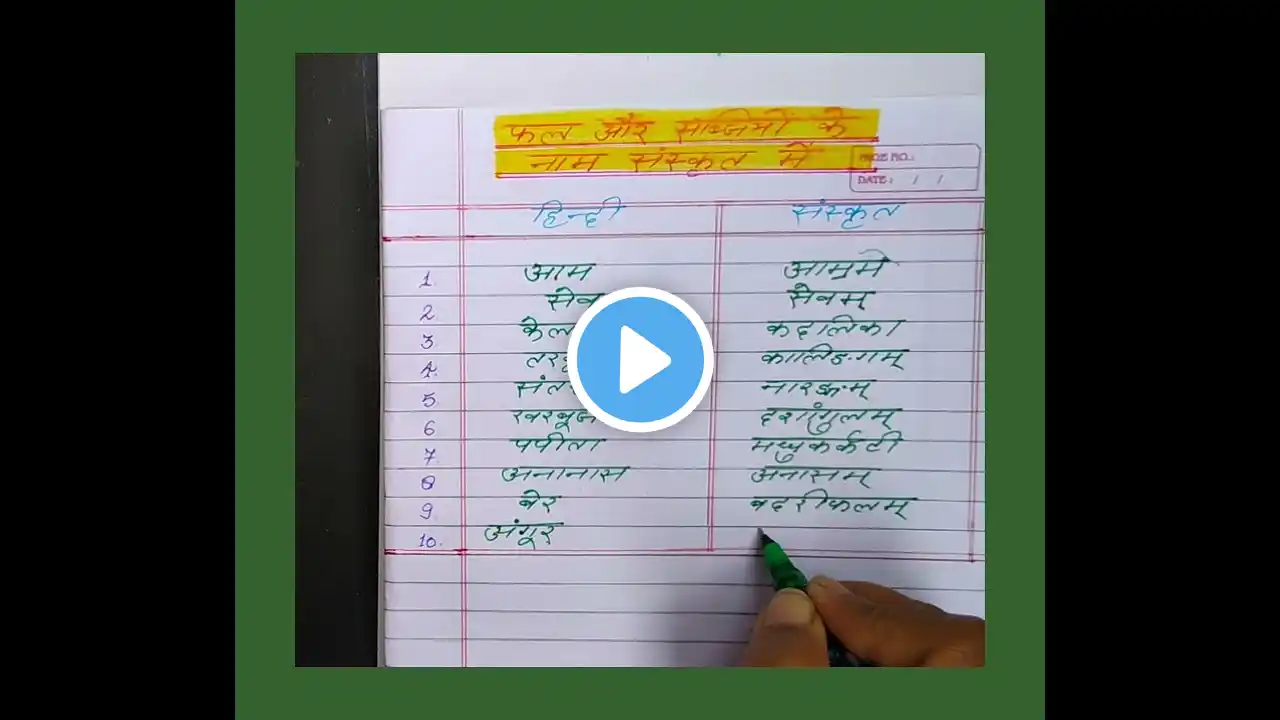 फल और सब्जियों के
नाम संस्कृत में
PAGE NO.:
DATE: / /
हिन्दी संस्कृत
1. आम आम्रमे
2. सेव सेवम्
3. कदलिका
4. कालिङगम्
5. नारङ्गम्
6. दशांगुलम्
7. पपीता मधुकर्कटी
8 अनानास अनासम्
9. बेर बदरीफलम्
10. अंगूर